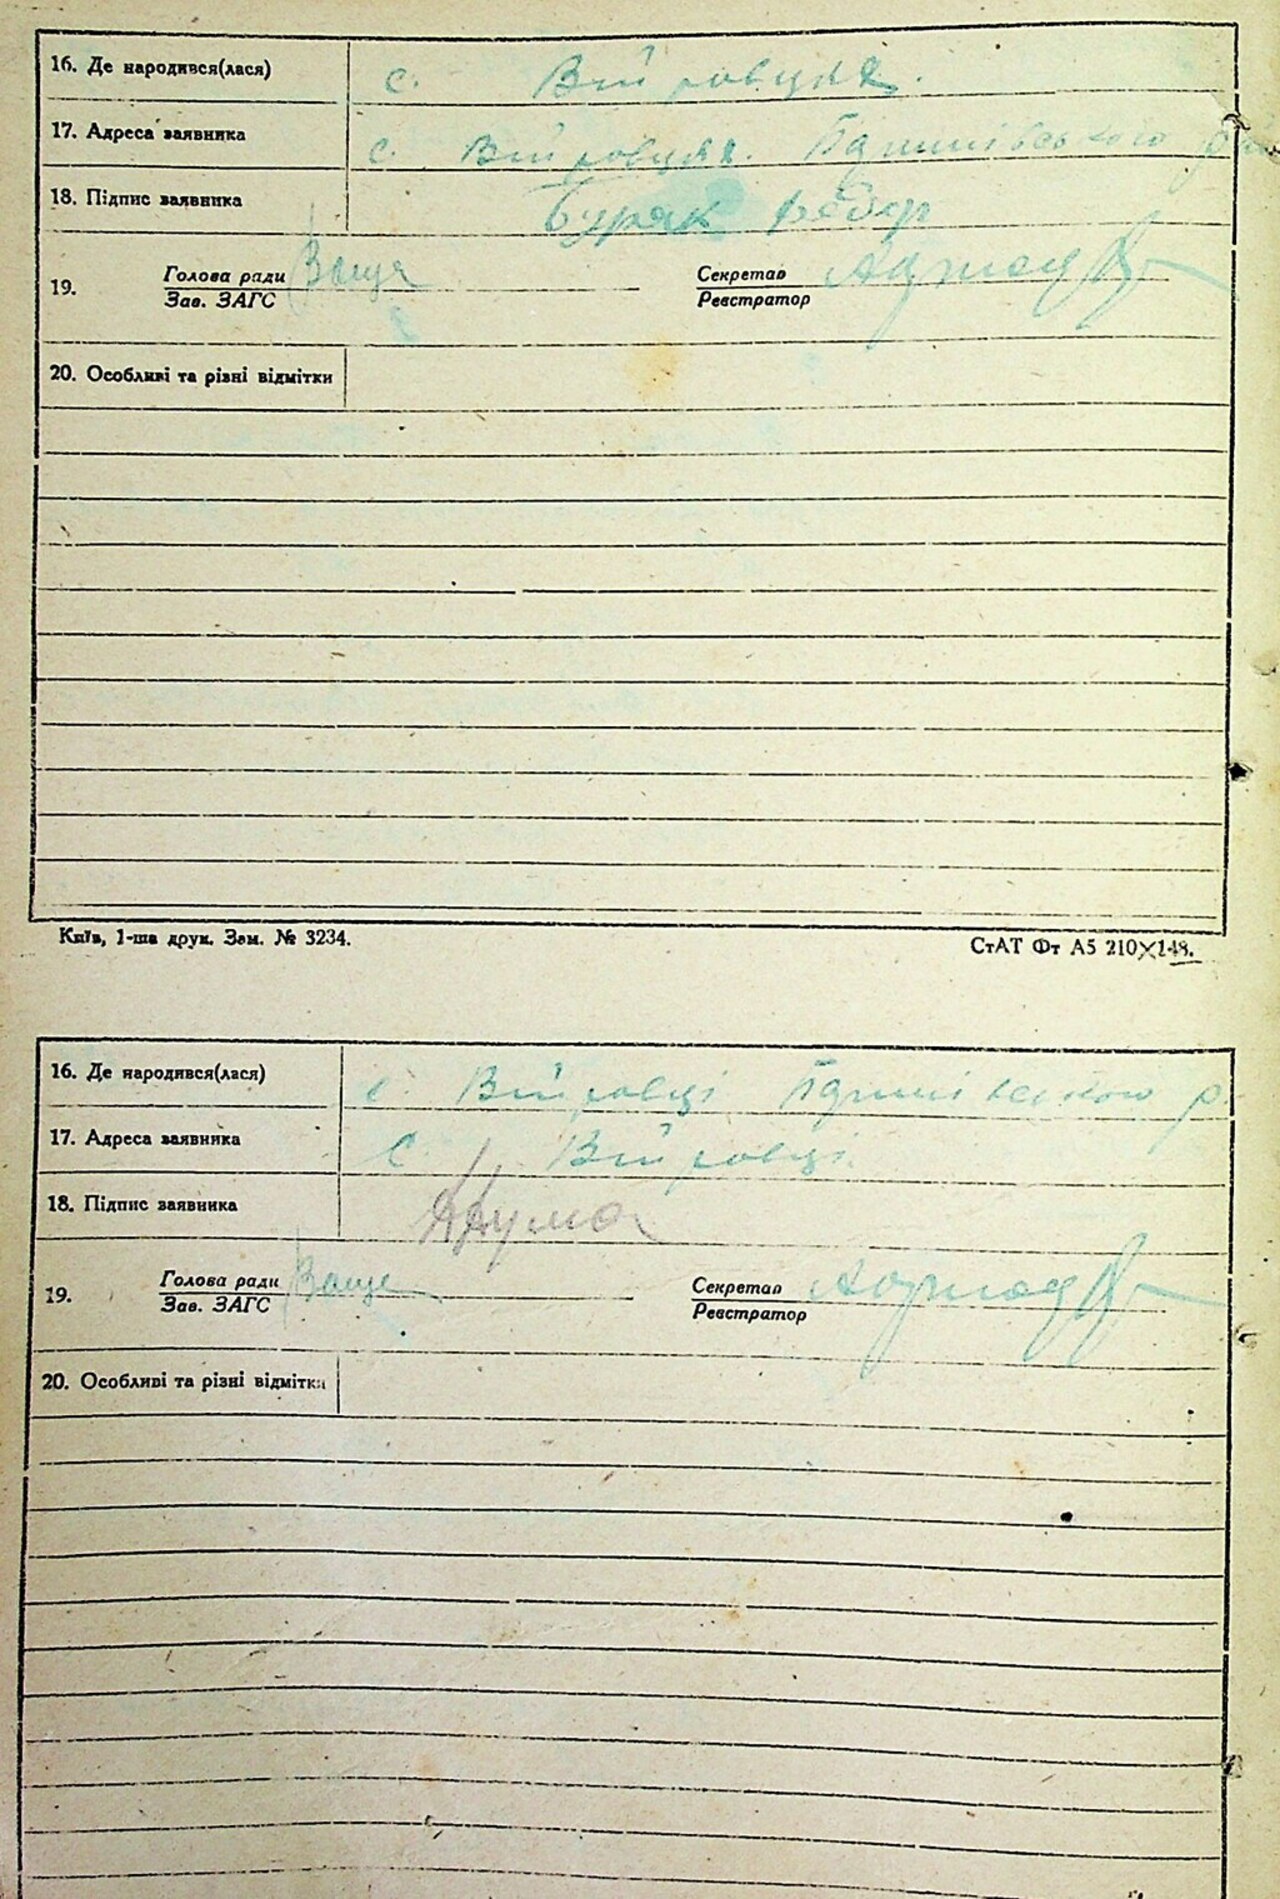 16. Де народився(лася) с. Війтовцях.
17. Адреса заявника с. Війтовцях.
18. Підпис заявника Буряк Федір
19. Голова ради Ваще Секретар
Зав. ЗАГС Реєстратор
20. Особливі та різні відмітки
Київ, 1-ша друк. Зам. № 3234. СтАТ Фт А5 210×148.
16. Де народився(лася) с. Війтовці р.
17. Адреса заявника с. Війтовці.
18. Підпис заявника
19. Голова ради Ваще Секретар
Зав. ЗАГС Реєстратор
20. Особливі та різні відмітки